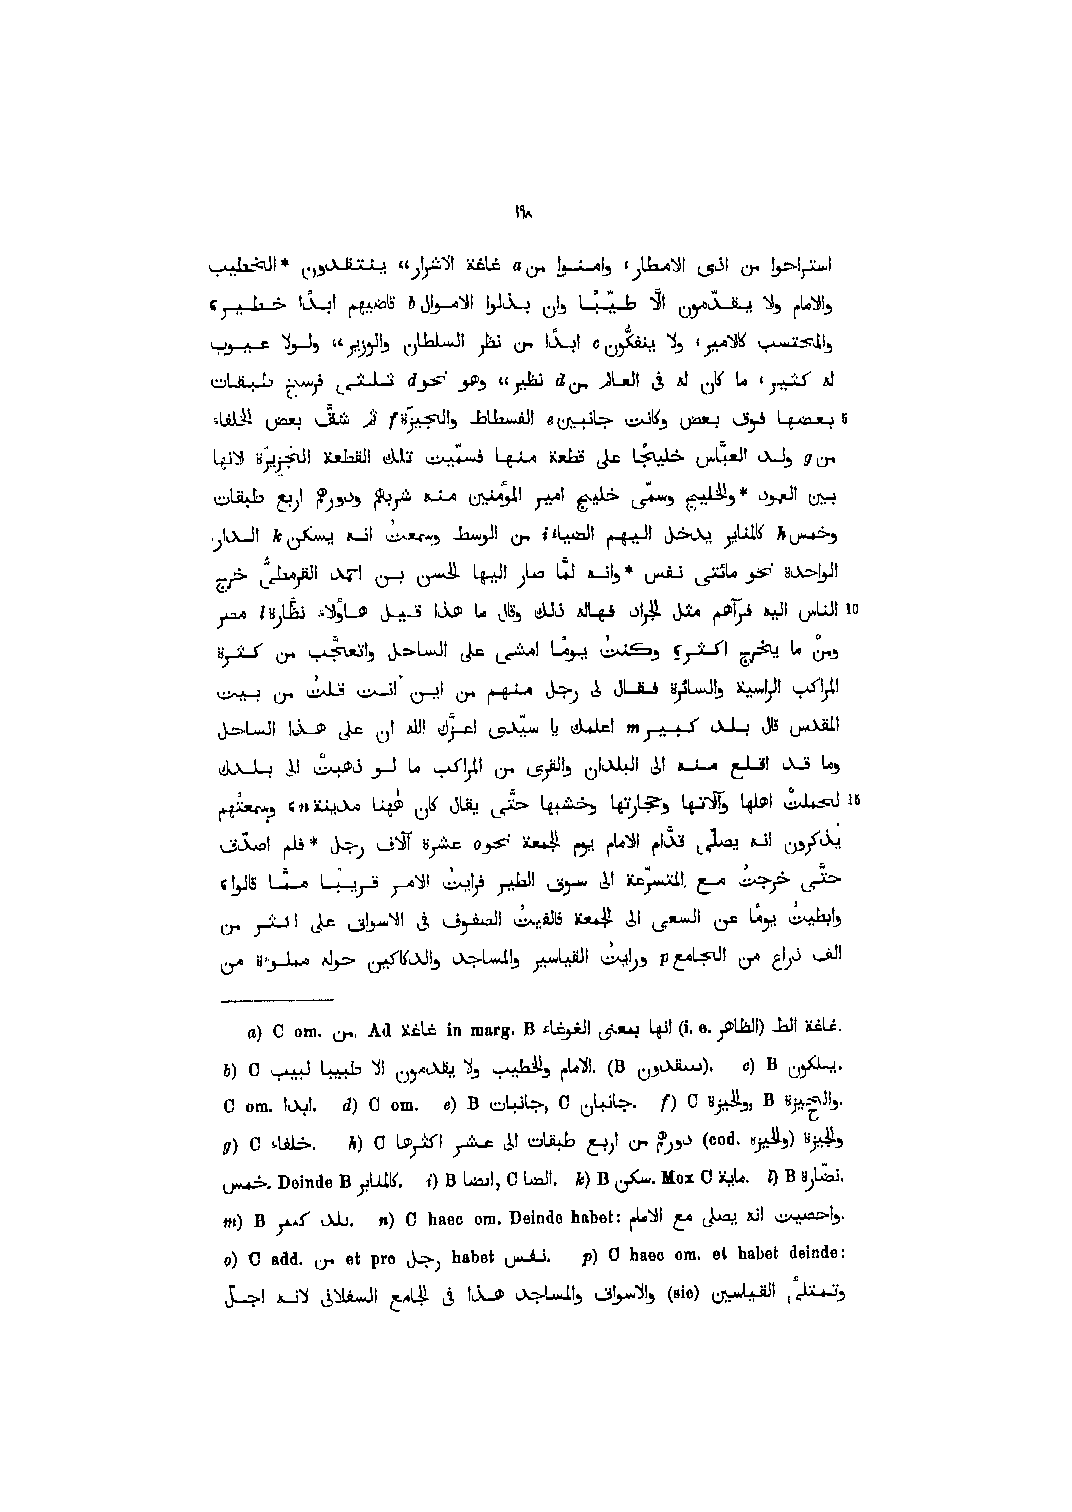 ١٩٨
استراحوا من اذى الامطار، وامنوا من a غاغة الاشرار“ ينتقدون *الخطيب
والامام ولا يقدّمون الّا طيّبًا وان بذلوا الاموال b قاضيهم ابدًا خطير،
والمحتسب كالامير، ولا ينفكّون c ابدًا من نظر السلطان والوزير“ ولولا عيوب
له كثير، ما كان له فى العالم من d نظير“ وهو نحو d ثلثى فرسخ طبقات
5 بعضها فوق بعض وكانت جانبين e الفسطاط والجيزة f ثم شقّ بعض الخلفاء
من g ولد العبّاس خليجًا على قطعة منها فسمّيت تلك القطعة الجزيزة لانها
بين العود *والخليج وسمّى خليج امير المؤمنين منه شربهم ودورهم اربع طبقات
وخمس h كالمنابر يدخل اليهم الضياء i من الوسط وسمعتُ انه يسكن k الدار
الواحدة نحو مائتى نفس *وانه لمّا صار اليها الحسن بن احمد القرمطىُّ خرج
10 الناس اليه فرآهم مثل الجراد فهاله ذلك وقال ما هذا قيل هاؤلاء نظّارة l مصر
ومنْ ما يخرج اكثر، وكنتُ يومًا امشى على الساحل واتعجّب من كثرة
المراكب الراسية والسائرة فقال لى رجل منهم من اين انت قلتُ من بيت
المقدس قال بلد كبير m اعلمك يا سيّدى اعزّك الله ان على هذا الساحل
وما قد اقلع منه الى البلدان والقرى من المراكب ما لو ذهبتْ الى بلدك
15 لحملتْ اهلها وآلاتها وحجارتها وخشبها حتّى يقال كان هٰهنا مدينة n، وسمعتُهم
يذكرون انه يصلّى قدّام الامام يوم الجمعة نحو o عشرة آلاف رجل *فلم اصدّق
حتّى خرجتُ مع المتسرّعة الى سوق الطير فرايتُ الامر قريبًا ممّا قالوا،
وابطيتُ يومًا عن السعى الى الجمعة فالفيتُ الصفوف فى الاسواق على اكثر من
الف ذراع من الجامع p ورايتُ القياسير والمساجد والدكاكين حوله مملوءة من
a) C om. من. Ad غاغة in marg. B انها بمعنى الغوغاء (i. e. الظاهر) غاغة الظ.
b) C الامام والخطيب ولا يقدمون الا طبيبا لبيب. (B سعدون). c) B يملكون.
C om. ابدا. d) C om. e) B جانبات, C جانبان. f) C والجيزة, B والجيزة.
g) C خلفاء. h) C دورهم من اربع طبقات الى عشر اكثرها (cod. والحيزة) والجيزة
خمس. Deinde B كالمنابر. i) B انصا, C الصا. k) B سكن. Mox C ماية. l) B نضّارة.
m) B بلد كبير. n) C haec om. Deinde habet: واحصيت انه يصلى مع الامام.
o) C add. من et pro رجل habet نفس. p) C haec om. et habet deinde:
وتمتلئ القياسين (sic) والاسواق والمساجد هذا فى الجامع السفلانى لانه اجلّ